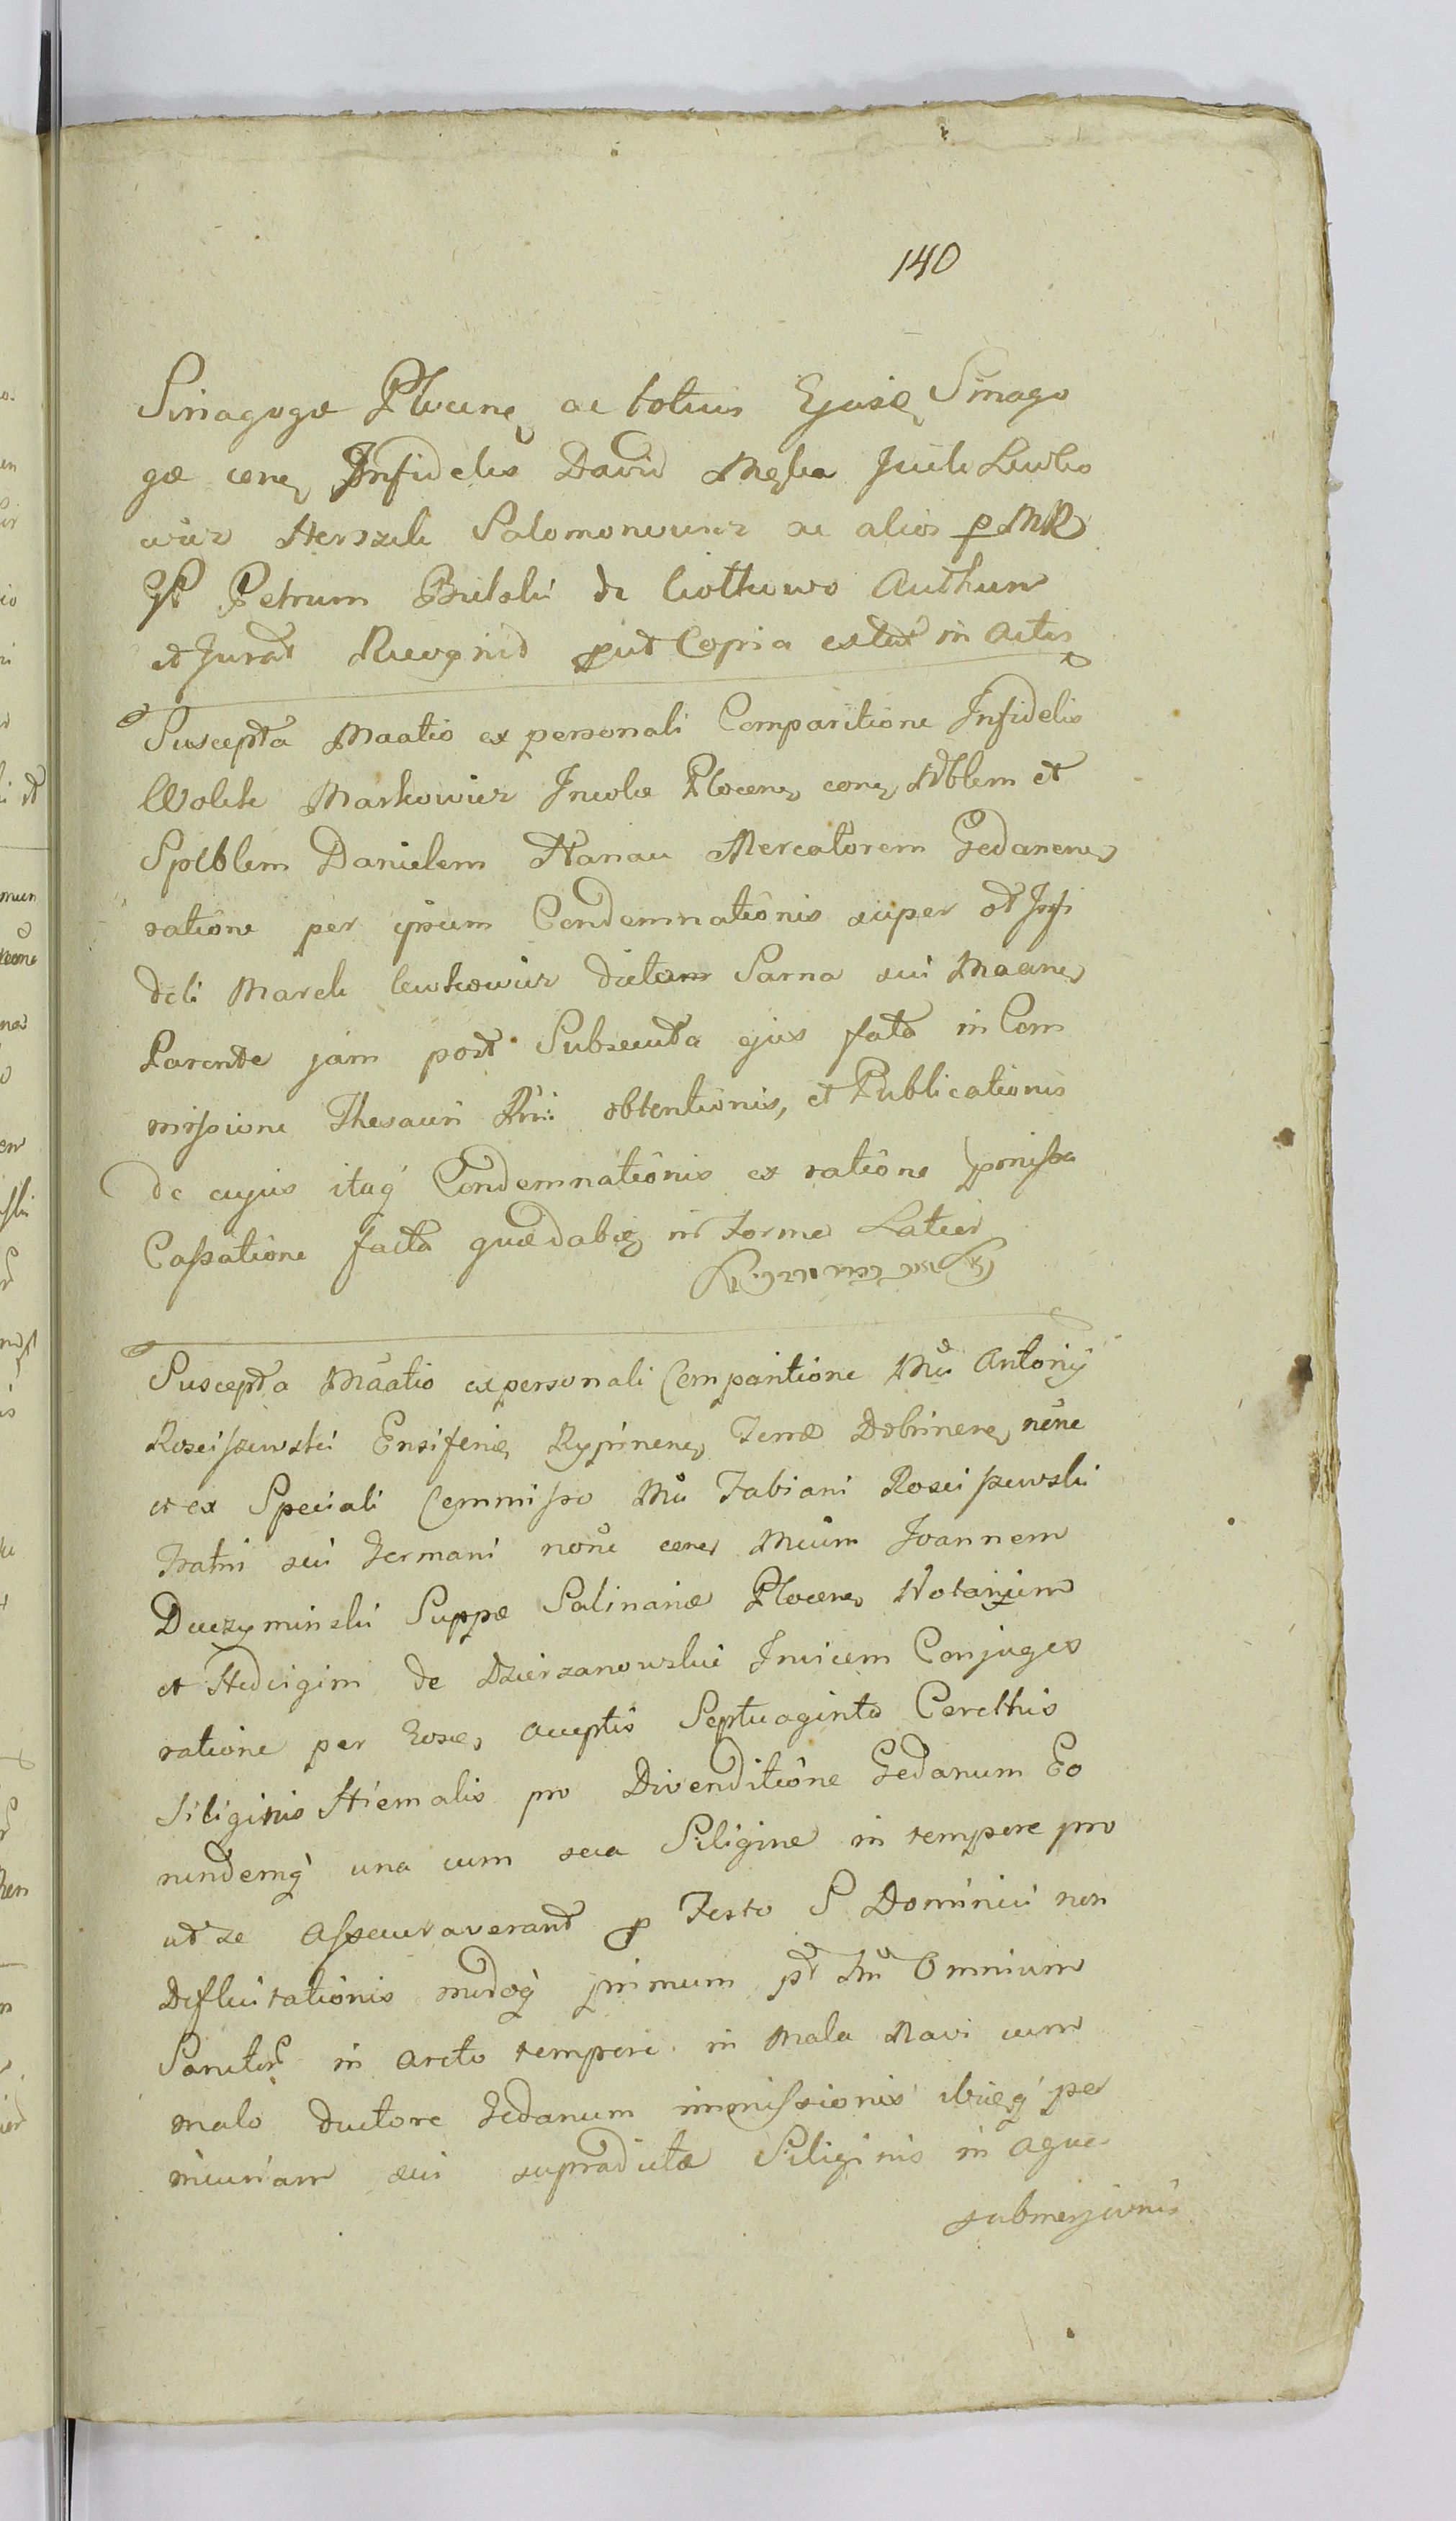 140
Sinagogæ Plocen ac totius Ejusd Sinago
gæ cone Infideles David Meyka Jcek Lewko
wicz Herszek Salomonowicz ac alios p MR
Gł Petrum Bielski de Ciotkowo Authum
et Jurat Recognid put Copia extat in Actis
Suscepta Maatio ex personali Comparitione Infidelis
Wolek Markowicz Incolæ Plocen cone Nblem et
Spłblem Danielem Hanau Mercatorem Gedanens
ratione per ipsum Condemnationis super ot Infi
deli Marek Lewkowicz dictam Sarna sui Maanes
Parente jam post Subsecuta ejus fata in Com
missione Thesauri Rni: obtentionis, et Publicationis
de cujus itaq Condemnationis ex ratione pmissa
Cassatione facta quædabig in Forma Latiori
Suscepta Maatio ex personali Comparitione Mci Antonij
Rosciszewski Ensiferi Rypinens Terræ Dobrinens, nêne
et ex Speciali Commisso Mci Fabiani Rosciszewski
Fratri sui Germani none cone Mcum Joannem
Duczyminski Suppæ Salinariæ Plocens Notarium
et Hedvigim de Dzierzanowskie Invicem Conjuges
ratione per Eosd acceptis Septuaginta Corcthis
Siliginis Hiemalis pro Divenditione Gedanum Eo
rundemq una cum sua Siligine in tempore pro
ut se assecuraverant p Festo S Dominici non
Defluitationis midoq primum pt Fm Omnium
Sanctor in arcto tempore in mala Navi cum
malo ductore Gedanum immissionis ibiq per
incuriam sui supradictæ Siliginis in aqua
submersionis